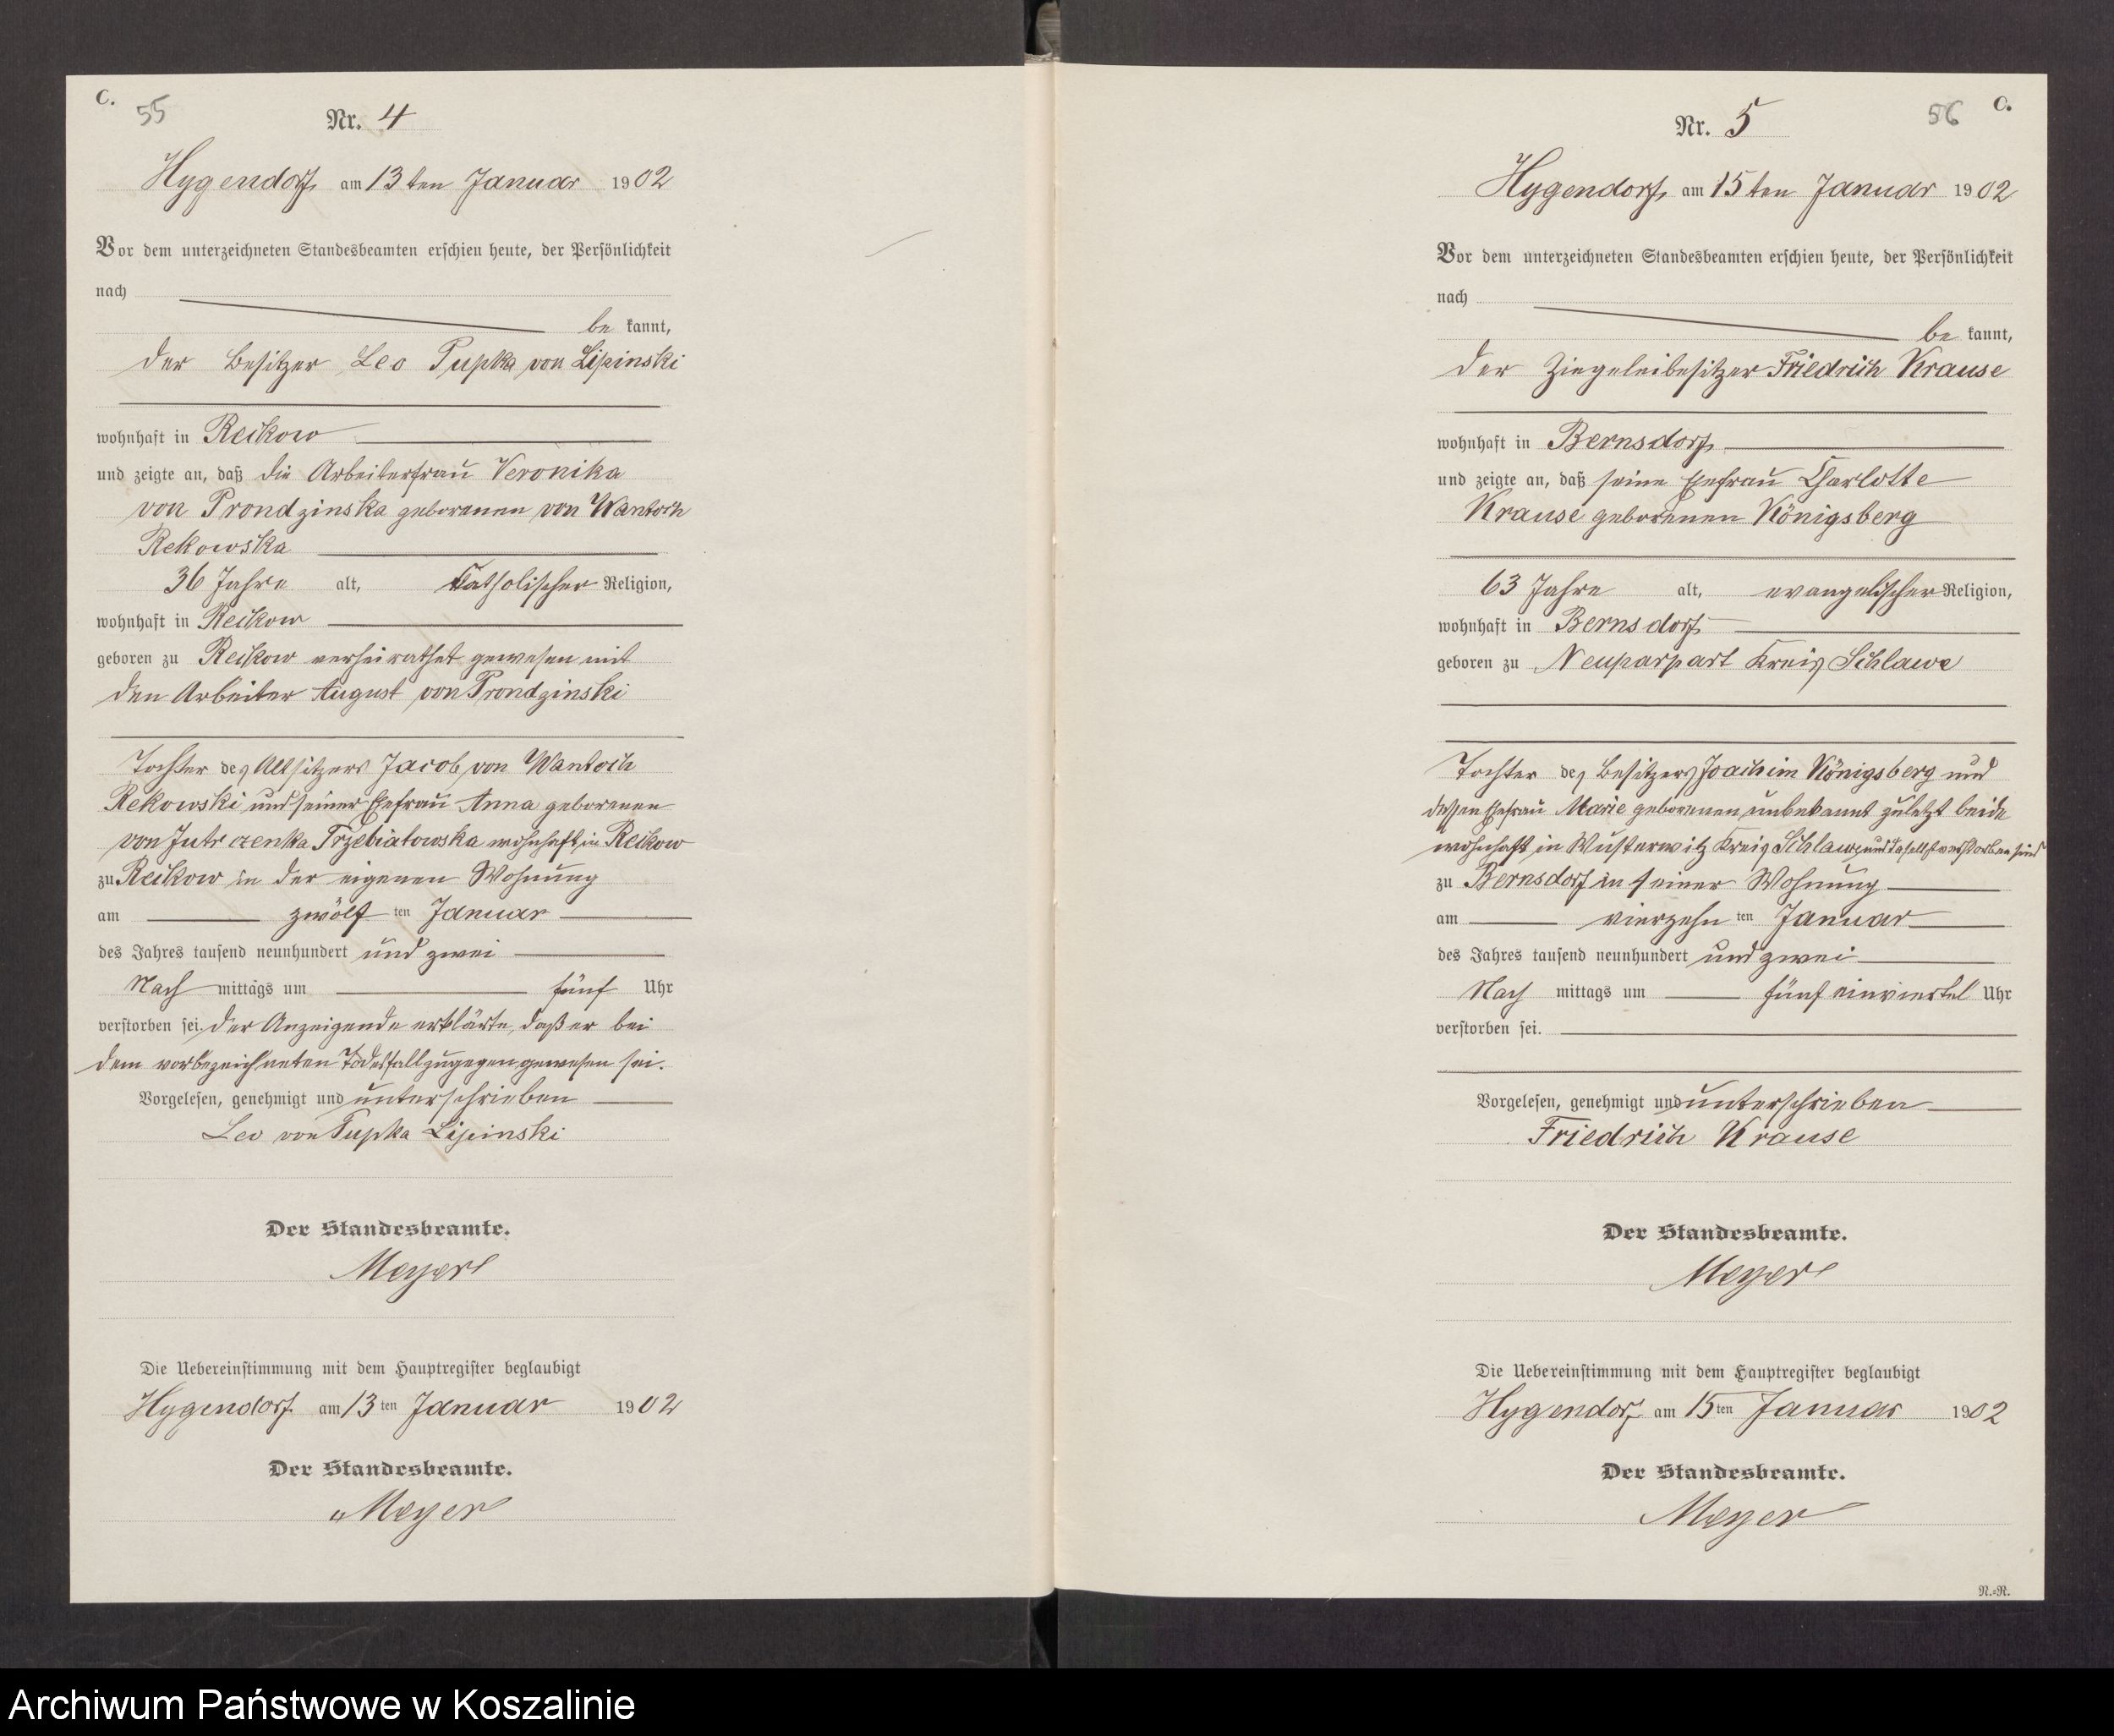 C.
55
Nr. 4
Hygendorf am 13ten Januar 1902
Vor dem unterzeichneten Standesbeamten erschien heute, der Persönlichkeit
nach
be kannt,
der Besitzer Leo Pupka von Lipinski
wohnhaft in Reckow
und zeigte an, daß die Arbeiterfrau Veronika
von Prondzinska geborenen von Wantoch
Rekowska
36 Jahre alt, katholischer Religion,
wohnhaft in Reckow
geboren zu Reckow verheirathet gewesen mit
den Arbeiter August von Prondzinski
Tochter des Altsitzers Jacob von Wantoch
Rekowski und seiner Ehefrau Anna geborenen
von Jutrczenka Trzebiatowska wohnhaft in Reckow
zu Reckow in der eigenen Wohnung
am zwölf ten Januar
des Jahres tausend neunhundert und zwei
Nach mittags um fünf Uhr
verstorben sei. Der Anzeigende erklärte, daß er bei
dem vorbezeichneten Todesfall zugegen gewesen sei.
Vorgelesen, genehmigt und unterschrieben
Leo von Pupka Lipinski
Der Standesbeamte.
Meyer
Die Uebereinstimmung mit dem Hauptregister beglaubigt
Hygendorf am 13 ten Januar 1902
Der Standesbeamte.
Meyer
56
C.
Nr. 5
Hygendorf am 15ten Januar 1902
Vor dem unterzeichneten Standesbeamten erschien heute, der Persönlichkeit
nach
be kannt,
der Ziegeleibesitzer Friedrich Krause
wohnhaft in Bernsdorf
und zeigte an, daß seine Ehefrau Charlotte
Krause geborenen Königsberg
63 Jahre alt, evangelischer Religion,
wohnhaft in Bernsdorf
geboren zu Neuparpart Kreis Schlawe
Tochter des Besitzers Joachim Königsberg und
dessen Ehefrau Marie geborenen unbekannt zuletzt beide
wohnhaft in Wusterwitz Kreis Schlawe und daselbst verstorben sind
zu Bernsdorf in seiner Wohnung
am vierzehn ten Januar
des Jahres tausend neunhundert und zwei
Nach mittags um fünf einviertel Uhr
verstorben sei.
Vorgelesen, genehmigt und unterschrieben
Friedrich Krause
Der Standesbeamte.
Meyer
Die Uebereinstimmung mit dem Hauptregister beglaubigt
Hygendorf am 15 ten Januar 1902
Der Standesbeamte.
Meyer
N.=R.
Archiwum Państwowe w Koszalinie